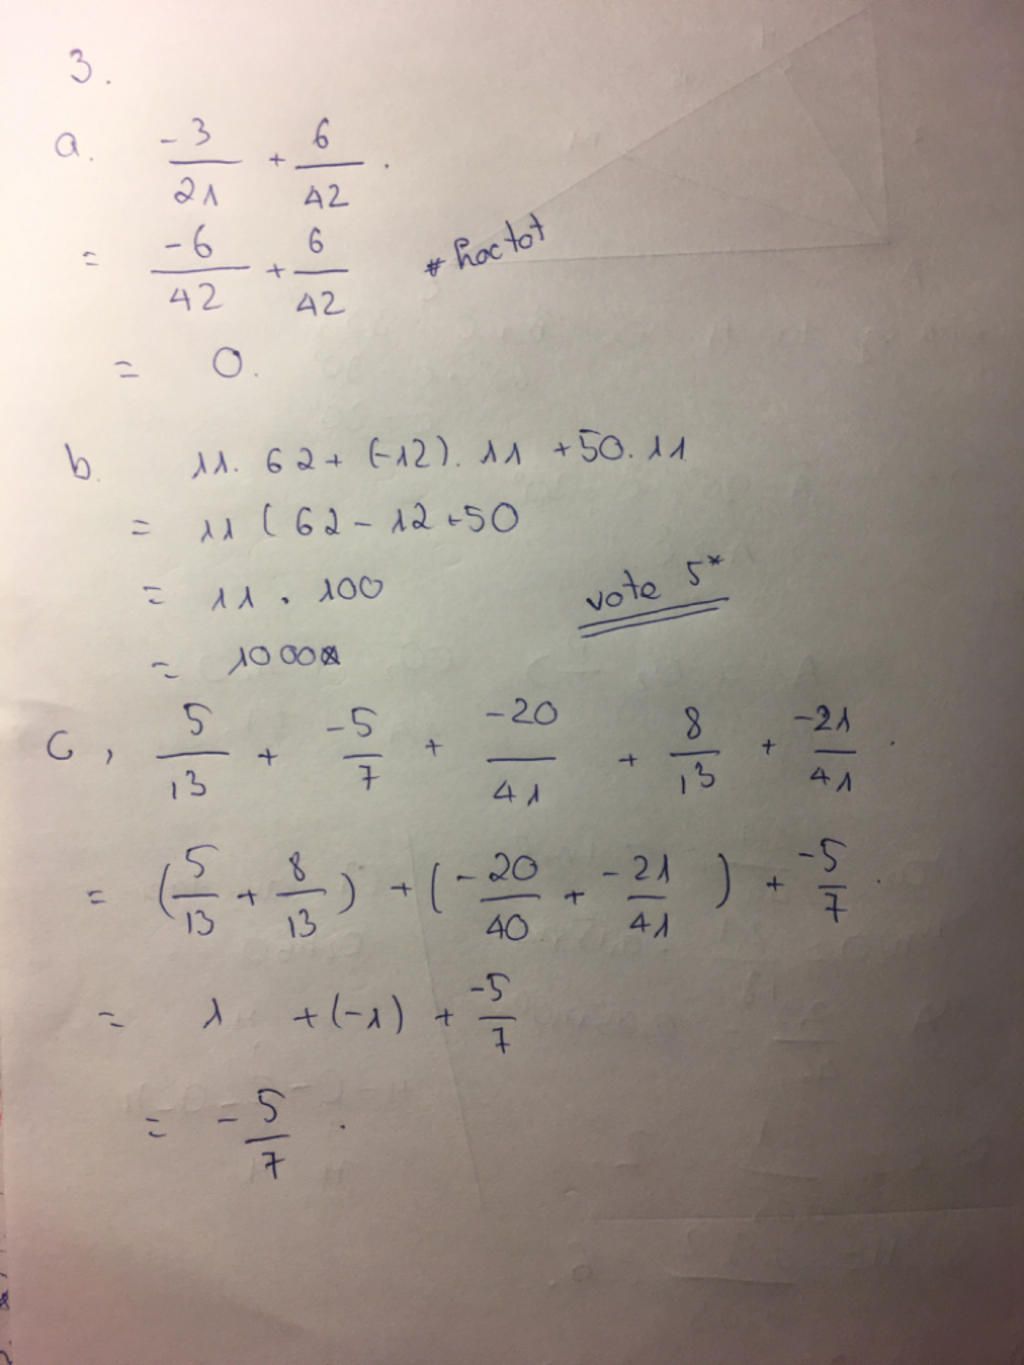 3.
a. -3/21 + 6/42 .
= -6/42 + 6/42 # hoctot
= 0.
b. 11. 62 + (-12). 11 + 50. 11
= 11 ( 62 - 12 + 50
= 11 . 100
vote 5*
= 1000
c, 5/13 + -5/7 + -20/41 + 8/13 + -21/41 .
= (5/13 + 8/13) + (-20/40 + -21/41) + -5/7 .
= 1 + (-1) + -5/7
= -5/7 .